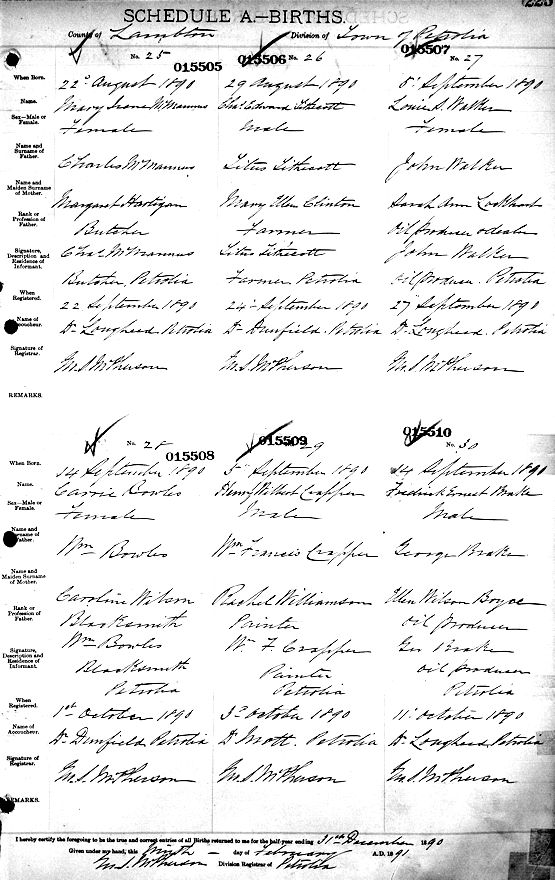 SCHEDULE A.—BIRTHS.
County of Lambton Division of Town of Petrolia
No. 25 015505 015506 No. 26 015507 No. 27
When Born. 22d August 1890 29 August 1890 8th September 1890
Name. Mary Irene McMannus Chas Edward Louis S. Walker
Sex—Male or Female. Female Male Female
Name and Surname of Father. Charles McMannus Titus John Walker
Name and Maiden Surname of Mother. Margaret Hartigan Mary Ellen Clinton Sarah Ann Lockhart
Rank or Profession of Father. Butcher Farmer Oil Producer & dealer
Signature, Description and Residence of Informant. Chas McMannus Titus John Walker
Butcher, Petrolia Farmer Petrolia Oil Producer. Petrolia
When Registered. 22 September 1890 24th September 1890 27 September 1890
Name of Accoucheur. Dr Lougheed. Petrolia Dr Dunfield. Petrolia Dr Lougheed. Petrolia
Signature of Registrar. McPherson McPherson McPherson
REMARKS.
No. 28 015508 015509 29 015510 No. 30
When Born. 14 September 1890 September 1890 14 September 1890
Name. Carrie Bowles Henry Wilbert Crapper Fredrick Ernest Brake
Sex—Male or Female. Female Male Male
Name and Surname of Father. Wm Bowles Wm Francis Crapper George Brake
Name and Maiden Surname of Mother. Caroline Wilson Rachel Williamson Ellen Wilson Boyce
Rank or Profession of Father. Blacksmith Painter Oil Producer
Signature, Description and Residence of Informant. Wm Bowles W. F. Crapper Geo Brake
Blacksmith Painter Oil Producer
Petrolia Petrolia Petrolia
When Registered. 1st October 1890 3d October 1890 11th October 1890
Name of Accoucheur. Dr Dunfield Petrolia Dr Mott. Petrolia Dr Lougheed Petrolia
Signature of Registrar. McPherson McPherson McPherson
REMARKS.
I hereby certify the foregoing to be the true and correct entries of all Births returned to me for the half-year ending 31st December 1890
Given under my hand, this Ninth day of February A.D. 1891.
McPherson Division Registrar of Petrolia